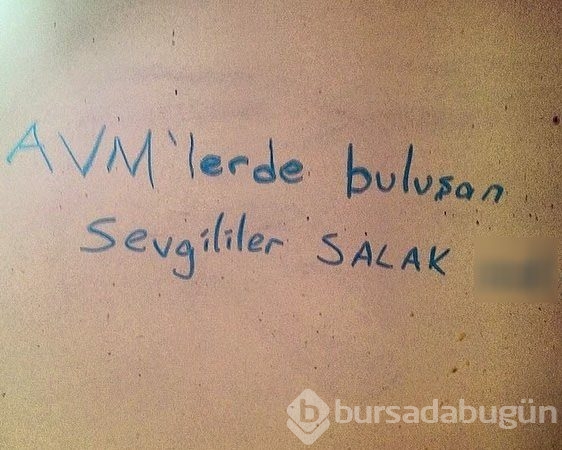 AVM'lerde buluşan
Sevgililer SALAK
bursadabugün